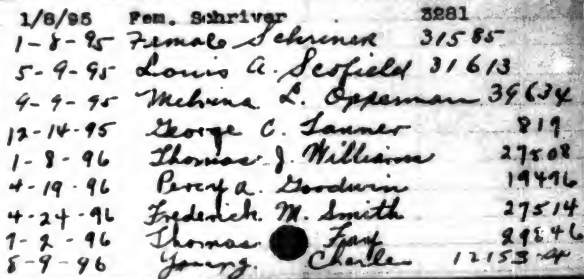 1/8/95 Fem. Schriver 3281
1-8-95 Female Schriner 31585
5-9-95 Louis A. Scofield 31613
9-9-95 Melvina L. Opperman 39634
12-14-95 George C. Tanner 819
1-8-96 Thomas J. Williams 27508
4-19-96 Percy A. Goodwin 19496
4-24-96 Frederick M. Smith 27514
9-2-96 Thomas 29846
8-9-96 Young Charles 12153